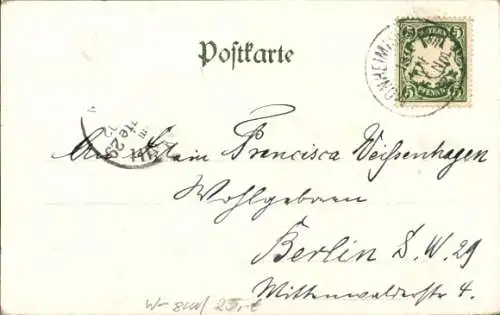 Postkarte
BAYERN
5 5
PFENNIG
29
An Fräulein Francisca Weissenhagen
Wohlgeboren
Berlin S. W. 29
Mittenwalderstr 4.
25,-€